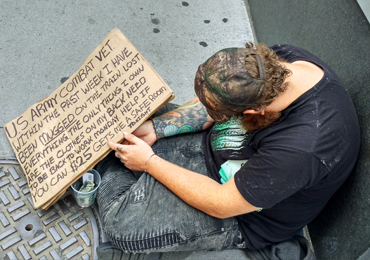 US ARMY COMBAT VET.
WITHIN THE PAST WEEK I HAVE
BEEN MUGGED ON THE TRAIN. LOST
EVERYTHING THE ONLY THING I OWN
ARE THE CLOTHES ON MY BACK. NEED
TO BE BACK TO WORK MONDAY. HELP IF
YOU CAN $25 GETS ME A SAFE ROOM